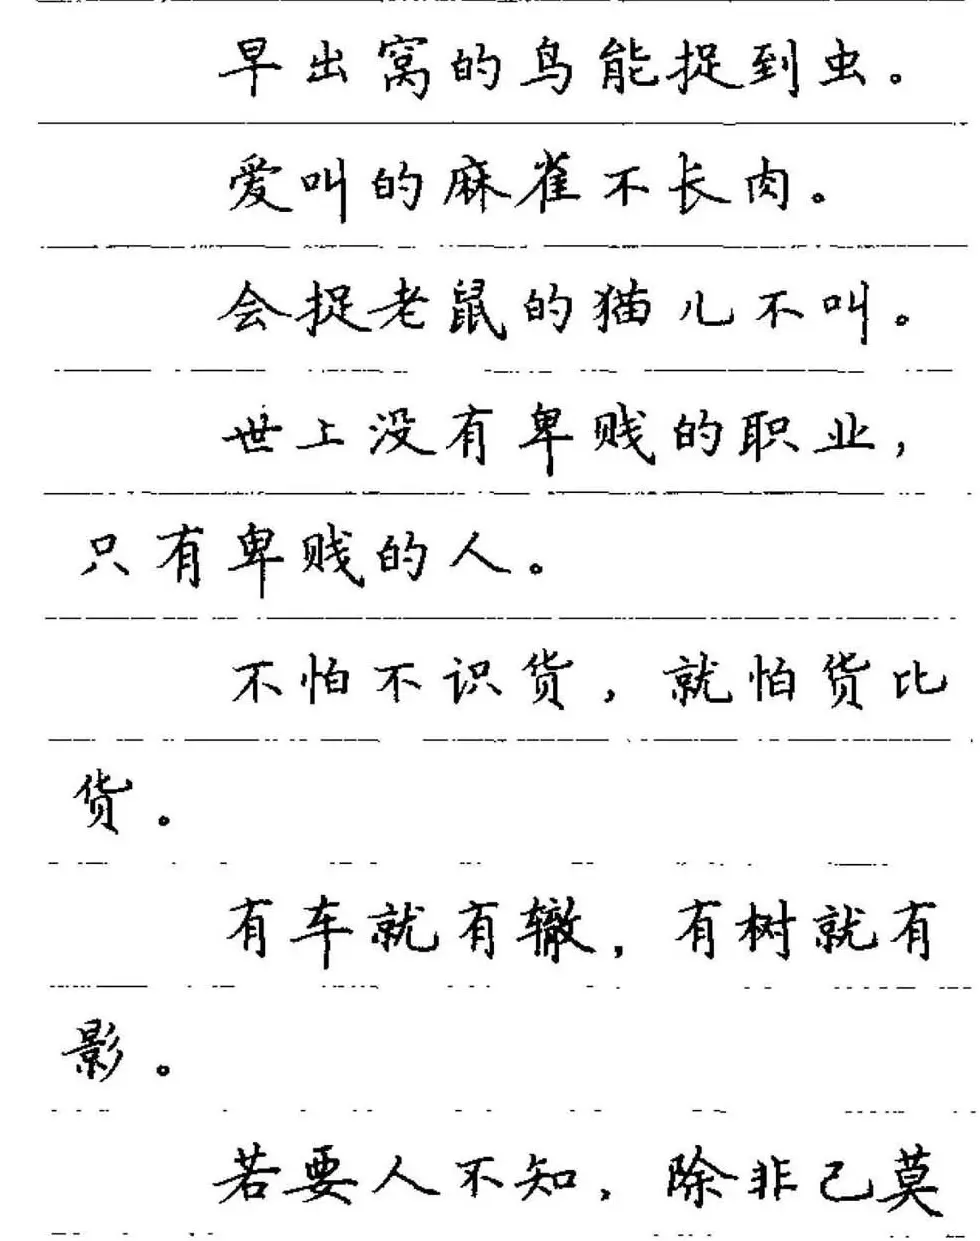 早出窝的鸟能捉到虫。
爱叫的麻雀不长肉。
会捉老鼠的猫儿不叫。
世上没有卑贱的职业，
只有卑贱的人。
不怕不识货，就怕货比
货。
有车就有辙，有树就有
影。
若要人不知，除非己莫